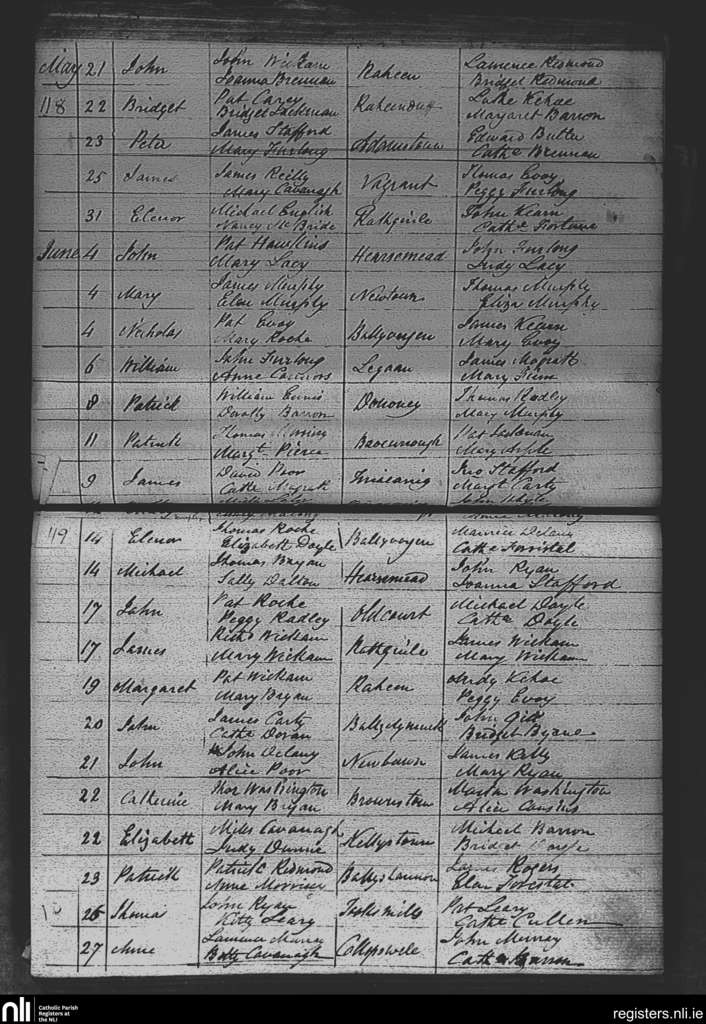 May 21 John John Wickam Raheen Laurence Redmond
Joanna Brennan Bridget Redmond
118 22 Bridget Pat Carey Luke Kehoe
Bridget Margaret Barron
23 Peter James Stafford Adamstown Edward Butler
Mary Furlong Cathe Brennan
25 James James Reilly Vagrant Thomas Evoy
Mary Cavanagh Peggy Furlong
31 Elenor Michael English Rathgirle John Kearn
Nancy McBride Cathe Fortune
June 4 John Pat Hawkins Hearsemead John Furlong
Mary Lacy Judy Lacy
4 Mary James Murphy Newtown Thomas Murphy
Elen Murphy Eliza Murphy
4 Nicholas Pat Evoy Ballyvogen James Kearn
Mary Roche Mary Evoy
6 William John Furlong Legaan James Magrath
Anne Connors Mary
8 Patrick William Ennis Dohoney Thomas Radley
Dorothy Barron Mary Murphy
11 Patrick Thomas Pat
Margt Pierce Mary
9 James David Poor Jno Stafford
Cathe Magrath Margt Carty
119 14 Elenor Thomas Roche Ballyvogen Maurice Delany
Elizabeth Doyle Cathe Forristal
14 Michael Thomas Bryan Hearsemead John Ryan
Sally Dalton Joanna Stafford
17 John Pat Roche Oldcourt Michael Doyle
Peggy Radley Cathe Doyle
17 James Richd Wickam Rathgirle James Wickam
Mary Wickam Mary Wickam
19 Margaret Pat Wickam Raheen Andy Kehoe
Mary Bryan Peggy Evoy
20 John James Carty John Gill
Cathe Doran Bridget Byane
21 John John Delany Newbawn James Kelly
Alice Poor Mary Ryan
22 Catherine Thos Washington Brownstown Martin Washington
Mary Bryan Alice Cousins
22 Elizabeth Miles Cavanagh Kellystown Michael Barron
Judy Dunne Bridget
23 Patrick Patrick Redmond Ballyshannon James Rogers
Anne Morrison Elen Forestal
26 Thomas John Ryan Pat Leary
Kitty Leary Cathe Cullen
27 Anne Laurence Murray John Murray
Betty Cavanagh Cathe Barron
nli Catholic Parish
Registers at
the NLI
registers.nli.ie